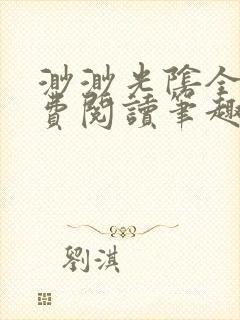 渺渺光陰全
費閱讀筆趣
劉淇